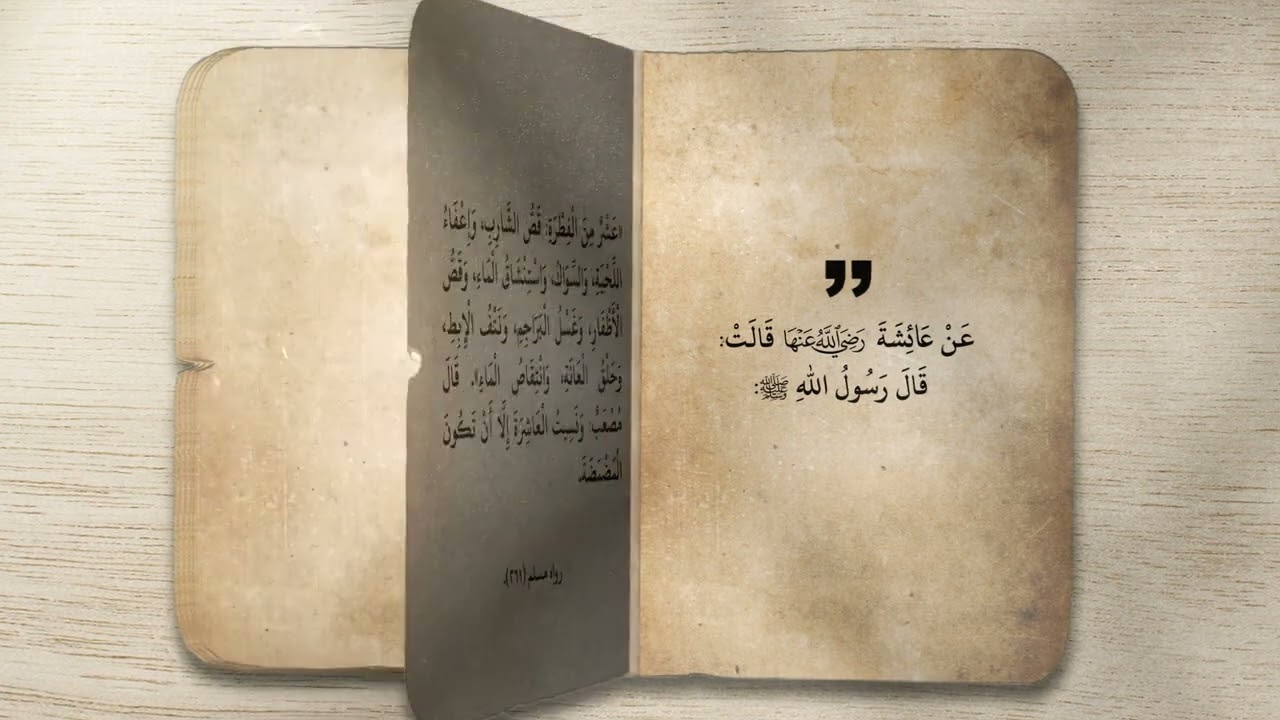 عَنْ عَائِشَةَ رَضِيَ اللَّهُ عَنْهَا قَالَتْ:
قَالَ رَسُولُ اللهِ ﷺ:
«عَشْرٌ مِنَ الْفِطْرَةِ: قَصُّ الشَّارِبِ، وَإِعْفَاءُ
اللِّحْيَةِ، وَالسِّوَاكُ، وَاسْتِنْشَاقُ الْمَاءِ، وَقَصُّ
الْأَظْفَارِ، وَغَسْلُ الْبَرَاجِمِ، وَنَتْفُ الْإِبِطِ،
وَحَلْقُ الْعَانَةِ، وَانْتِقَاصُ الْمَاءِ». قَالَ
مُصْعَبٌ: وَنَسِيتُ الْعَاشِرَةَ إِلَّا أَنْ تَكُونَ
الْمَضْمَضَةَ.
رواه مسلم (٢٦١).